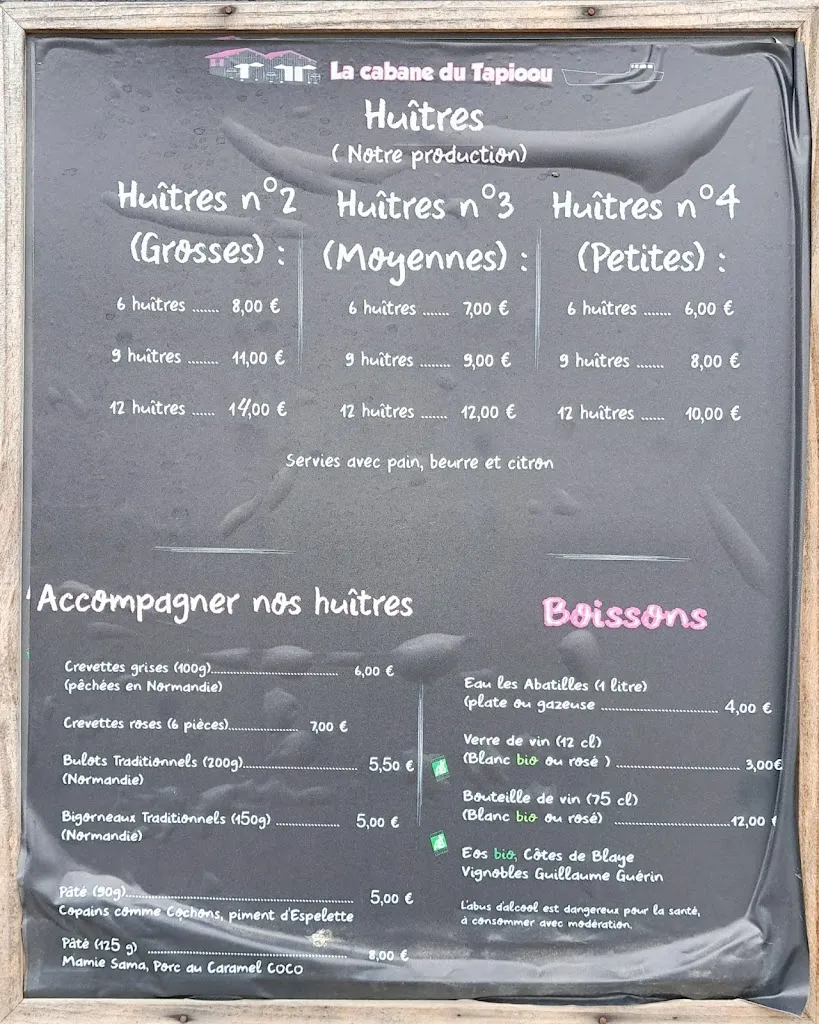 La cabane du Tapioou
Huîtres
( Notre production)
Huîtres n°2
(Grosses) :
6 huîtres ....... 8,00 €
9 huîtres ....... 11,00 €
12 huîtres ...... 14,00 €
Huîtres n°3
(Moyennes) :
6 huîtres ....... 7,00 €
9 huîtres ........ 9,00 €
12 huîtres ....... 12,00 €
Huîtres n°4
(Petites) :
6 huîtres ....... 6,00 €
9 huîtres ....... 8,00 €
12 huîtres ...... 10,00 €
Servies avec pain, beurre et citron
Accompagner nos huîtres
Crevettes grises (100g)................................ 6,00 €
(pêchées en Normandie)
Crevettes roses (6 pièces)................. 7,00 €
Bulots Traditionnels (200g)............................ 5,50 €
(Normandie)
Bigorneaux Traditionnels (150g) ................ 5,00 €
(Normandie)
Pâté (90g)............................................................ 5,00 €
Copains comme Cochons, piment d'Espelette
Pâté (125 g) .................................................. 8,00 €
Mamie Sama, Porc au Caramel COCO
Boissons
Eau les Abatilles (1 litre)
(plate ou gazeuse ............................. 4,00 €
Verre de vin (12 cl)
(Blanc bio ou rosé ) ................................ 3,00€
Bouteille de vin (75 cl)
(Blanc bio ou rosé) .............................12,00 €
Eos bio, Côtes de Blaye
Vignobles Guillaume Guérin
L'abus d'alcool est dangereux pour la santé,
à consommer avec modération.